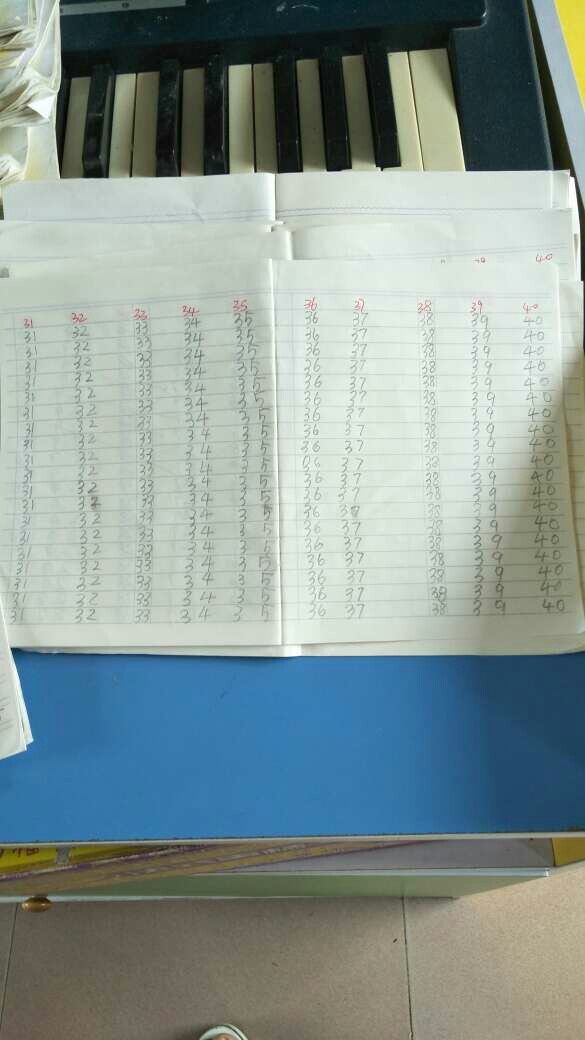 40
31 32 33 34 35 36 37 38 39 40
31 32 33 34 35 36 37 38 39 40
31 32 33 34 35 36 37 38 39 40
31 32 33 34 35 36 37 38 39 40
31 32 33 34 35 36 37 38 39 40
31 32 33 34 35 36 37 38 39 40
31 32 33 34 35 36 37 38 39 40
31 32 33 34 35 36 37 38 39 40
31 32 33 34 35 36 37 38 39 40
31 32 33 34 35 36 37 38 39 40
31 32 33 34 35 36 37 38 39 40
31 32 33 34 35 36 37 38 39 40
31 32 33 34 35 36 37 38 39 40
31 32 33 34 35 36 37 38 39 40
31 32 33 34 35 36 37 38 39 40
31 32 33 34 35 36 37 38 39 40
31 32 33 34 35 36 37 38 39 40
31 32 33 34 35 36 37 38 39 40
31 32 33 34 35 36 37 38 39 40
31 32 33 34 35 36 37 38 39 40